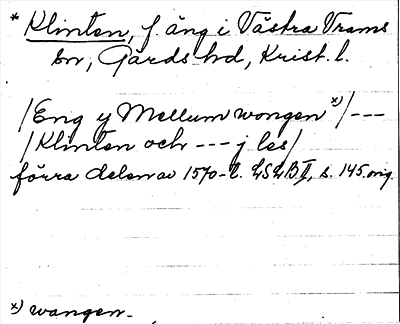 * Klinten, f äng i Västra Vrams
sn, Gärds hd, Krist. l.
/Eng y Mellum wongen x)/ ---
/Klinten och --- j les/
förra delen av 1570-t. LSLB II, s. 145. orig.
x) wangen.